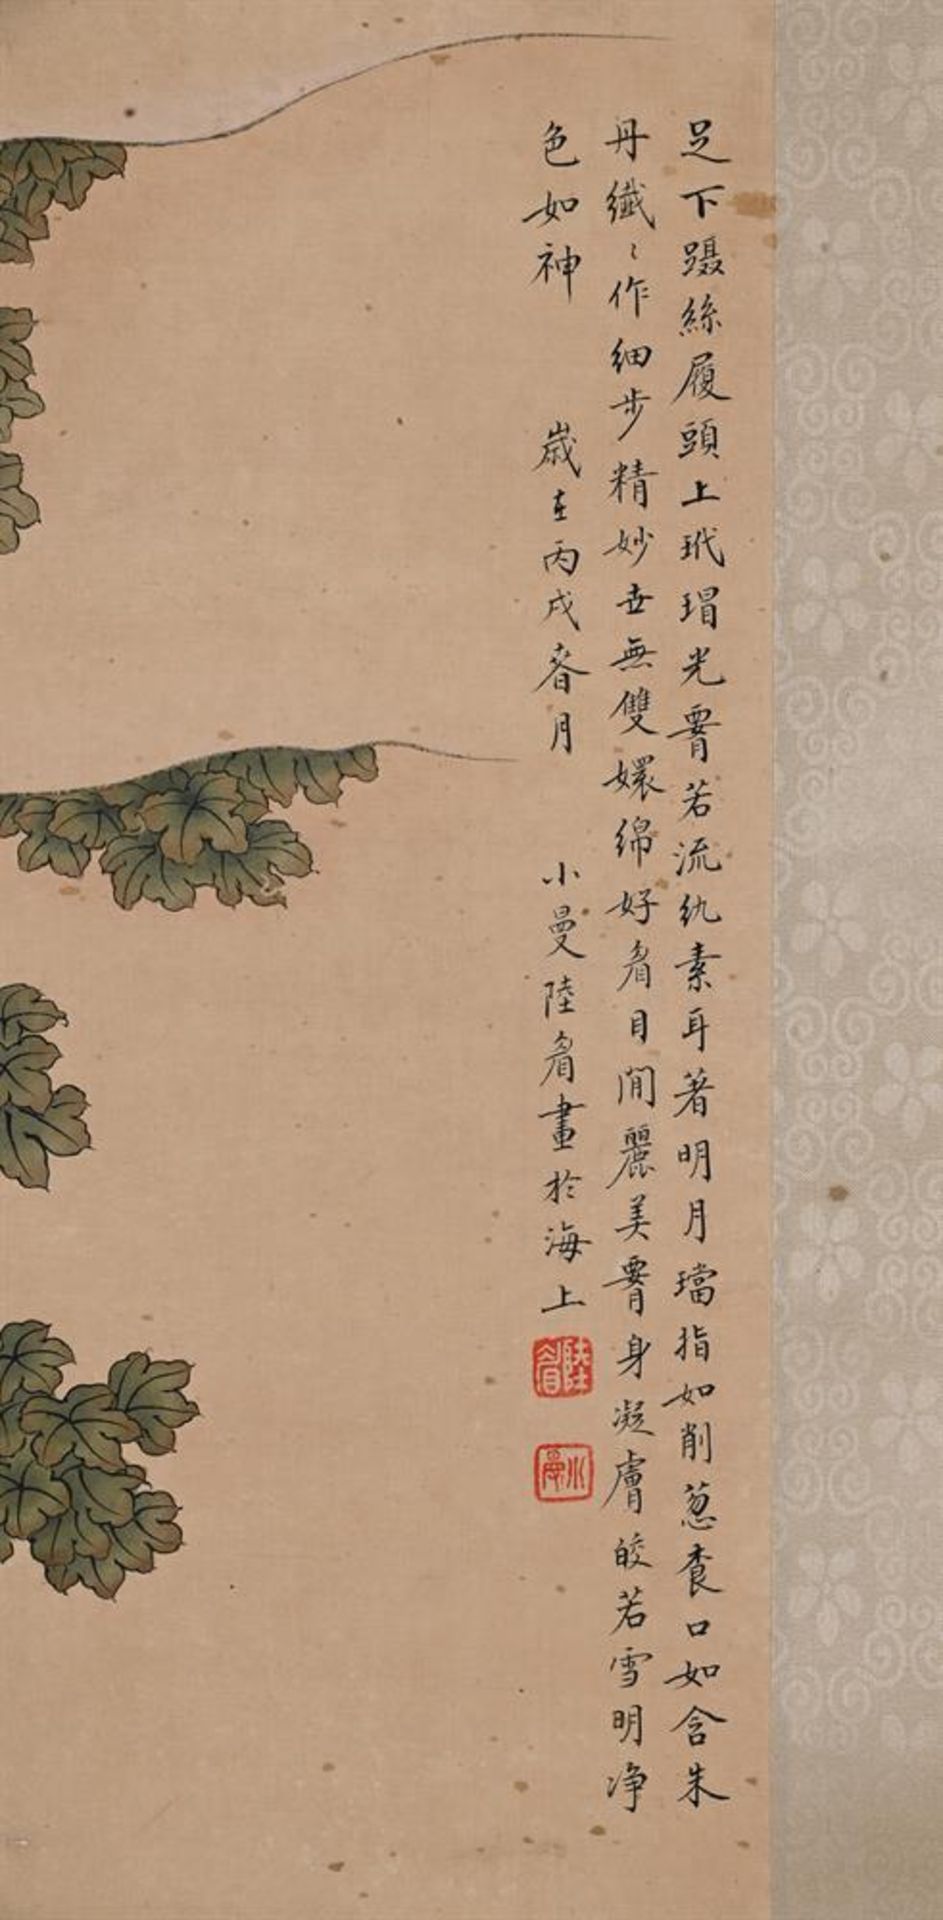 足下躡絲履頭上玳瑁光腰若流紈素耳著明月璫指如削葱根口如含朱
丹纖〻作細步精妙世無雙嬛綿好眉目閒麗美腰身凝膚皎若雪明净
色如神 歲在丙戌春月 小曼陸眉畫於海上
陸眉
小曼